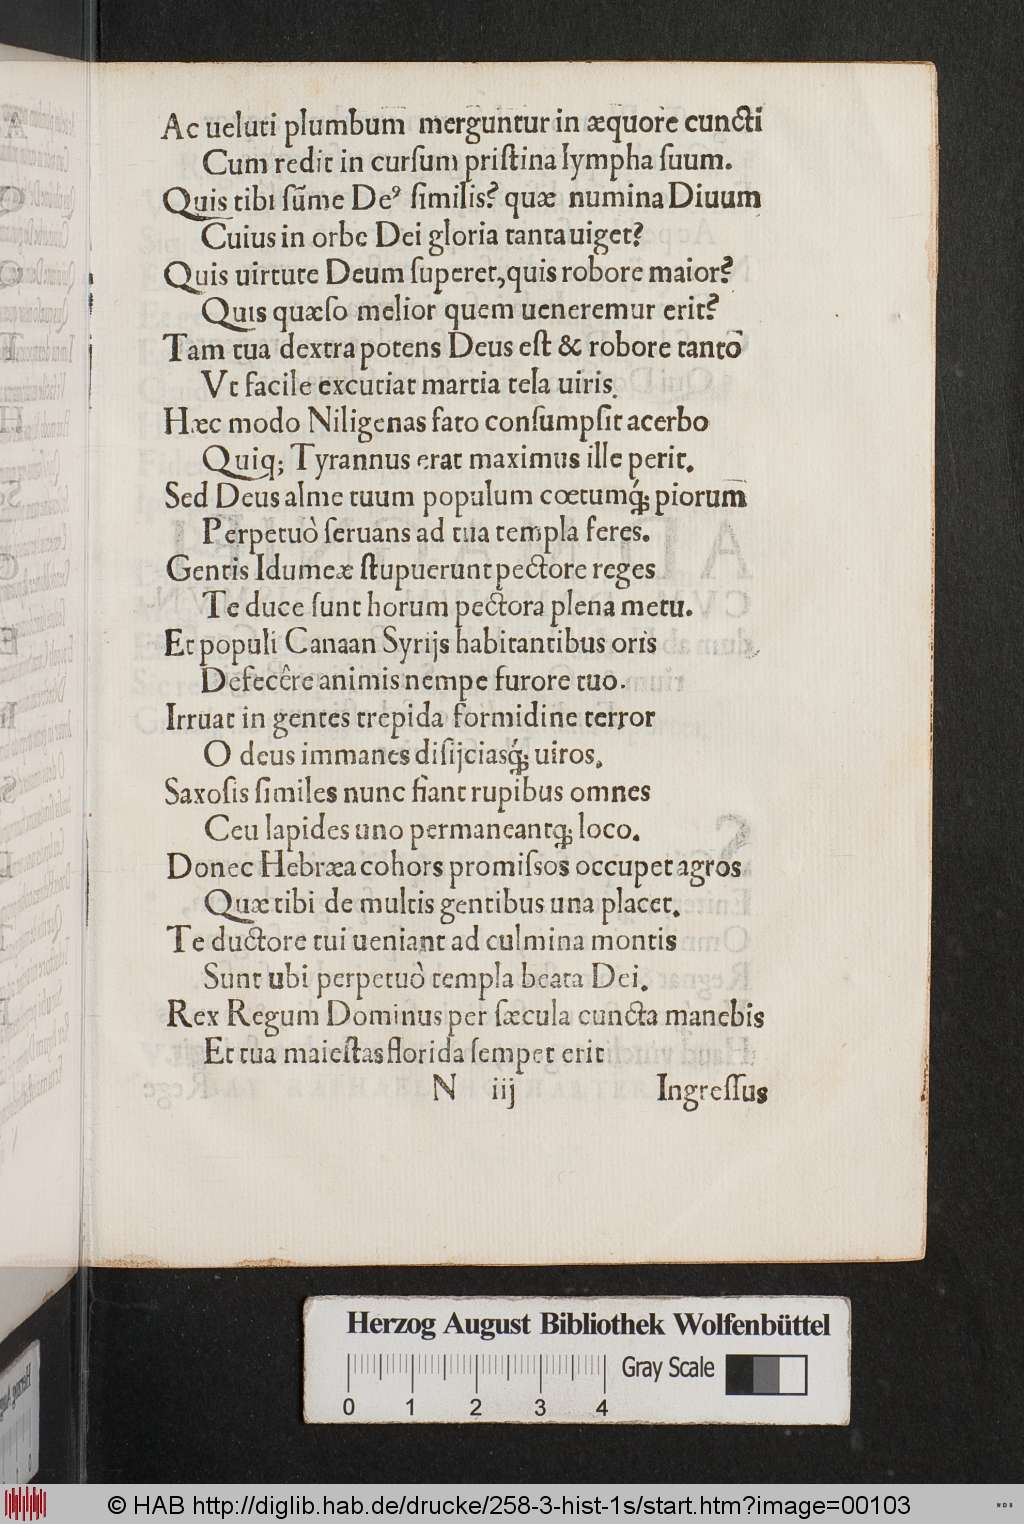 Ac ueluti plumbum merguntur in æquore cuncti
Cum redit in cursum pristina lympha suum.
Quis tibi sũme Deꝰ similis? quæ numina Diuum
Cuius in orbe Dei gloria tanta uiget?
Quis uirtute Deum superet, quis robore maior?
Quis quæso melior quem ueneremur erit?
Tam tua dextra potens Deus est & robore tanto
Vt facile excutiat martia tela uiris.
Hæc modo Niligenas fato consumpsit acerbo
Quiq; Tyrannus erat maximus ille perit.
Sed Deus alme tuum populum cœtumq́; piorum
Perpetuò seruans ad tua templa feres.
Gentis Idumeæ stupuerunt pectore reges
Te duce sunt horum pectora plena metu.
Et populi Canaan Syrijs habitantibus oris
Defecêre animis nempe furore tuo.
Irruat in gentes trepida formidine terror
O deus immanes disijciasq́; uiros.
Saxosis similes nunc fiant rupibus omnes
Ceu lapides uno permaneantq; loco.
Donec Hebræa cohors promissos occupet agros
Quæ tibi de multis gentibus una placet.
Te ductore tui ueniant ad culmina montis
Sunt ubi perpetuò templa beata Dei.
Rex Regum Dominus per sæcula cuncta manebis
Et tua maiestas florida semper erit
N iij Ingressus
Herzog August Bibliothek Wolfenbüttel
Gray Scale
0 1 2 3 4
© HAB http://diglib.hab.de/drucke/258-3-hist-1s/start.htm?image=00103